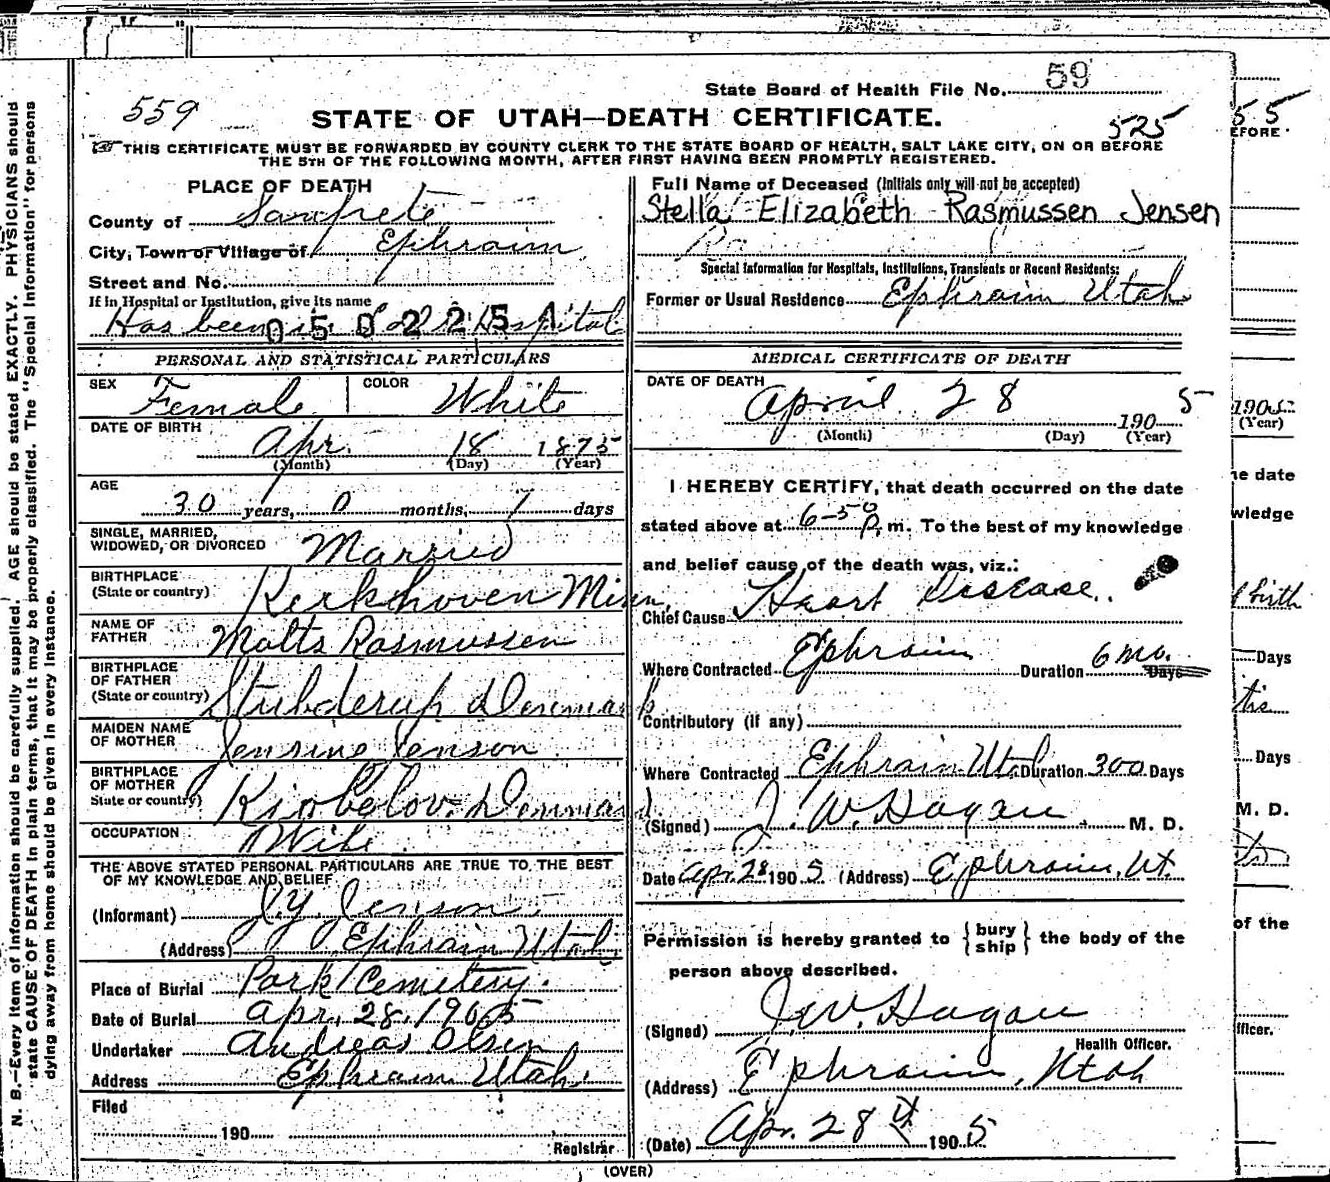 State Board of Health File No. 59
559
STATE OF UTAH—DEATH CERTIFICATE.
525
THIS CERTIFICATE MUST BE FORWARDED BY COUNTY CLERK TO THE STATE BOARD OF HEALTH, SALT LAKE CITY, ON OR BEFORE
THE 5TH OF THE FOLLOWING MONTH, AFTER FIRST HAVING BEEN PROMPTLY REGISTERED.
PLACE OF DEATH
County of Sanpete
City, Town or Village of Ephraim
Street and No.
If in Hospital or Institution, give its name
Has been in Hospital
0502251
PERSONAL AND STATISTICAL PARTICULARS
SEX Female COLOR White
DATE OF BIRTH
Apr. 18 1875
(Month) (Day) (Year)
AGE
30 years, 0 months, 7 days
SINGLE, MARRIED,
WIDOWED, OR DIVORCED Married
BIRTHPLACE
(State or country) Kerkhoven Minn.
NAME OF
FATHER Molts Rasmussen
BIRTHPLACE
OF FATHER
(State or country) Stubderup Denmark
MAIDEN NAME
OF MOTHER Jensine Jenson
BIRTHPLACE
OF MOTHER
State or country) Denmark
OCCUPATION Wife
THE ABOVE STATED PERSONAL PARTICULARS ARE TRUE TO THE BEST
OF MY KNOWLEDGE AND BELIEF
(Informant) J.Y. Jenson
(Address) Ephraim Utah
Place of Burial Park Cemetery.
Date of Burial Apr. 28. 1905
Undertaker Andreas Olsen
Address Ephraim Utah
Filed
190
Registrar
(OVER)
Full Name of Deceased (Initials only will not be accepted)
Stella Elizabeth Rasmussen Jensen
Ra
Special Information for Hospitals, Institutions, Transients or Recent Residents:
Former or Usual Residence Ephraim Utah
MEDICAL CERTIFICATE OF DEATH
DATE OF DEATH
April 28 1905
(Month) (Day) (Year)
I HEREBY CERTIFY, that death occurred on the date
stated above at 6-50 P. m. To the best of my knowledge
and belief cause of the death was, viz.:
Chief Cause Heart Disease.
Where Contracted Ephraim Duration 6 mo. Days
Contributory (if any)
Where Contracted Ephraim Utah Duration 300 Days
(Signed) J. W. Hagan M. D.
Date Apr. 28 1905 (Address) Ephraim, Ut.
Permission is hereby granted to { bury ship } the body of the
person above described.
(Signed) J. W. Hagan
Health Officer.
(Address) Ephraim, Utah
(Date) Apr. 28th 1905
N. B.—Every item of information should be carefully supplied. AGE should be stated EXACTLY. PHYSICIANS should
state CAUSE OF DEATH in plain terms, that it may be properly classified. The "Special Information" for persons
dying away from home should be given in every instance.
55
EFORE
190
(Year)
he date
wledge
birth
Days
Days
M. D.
of the
fficer.